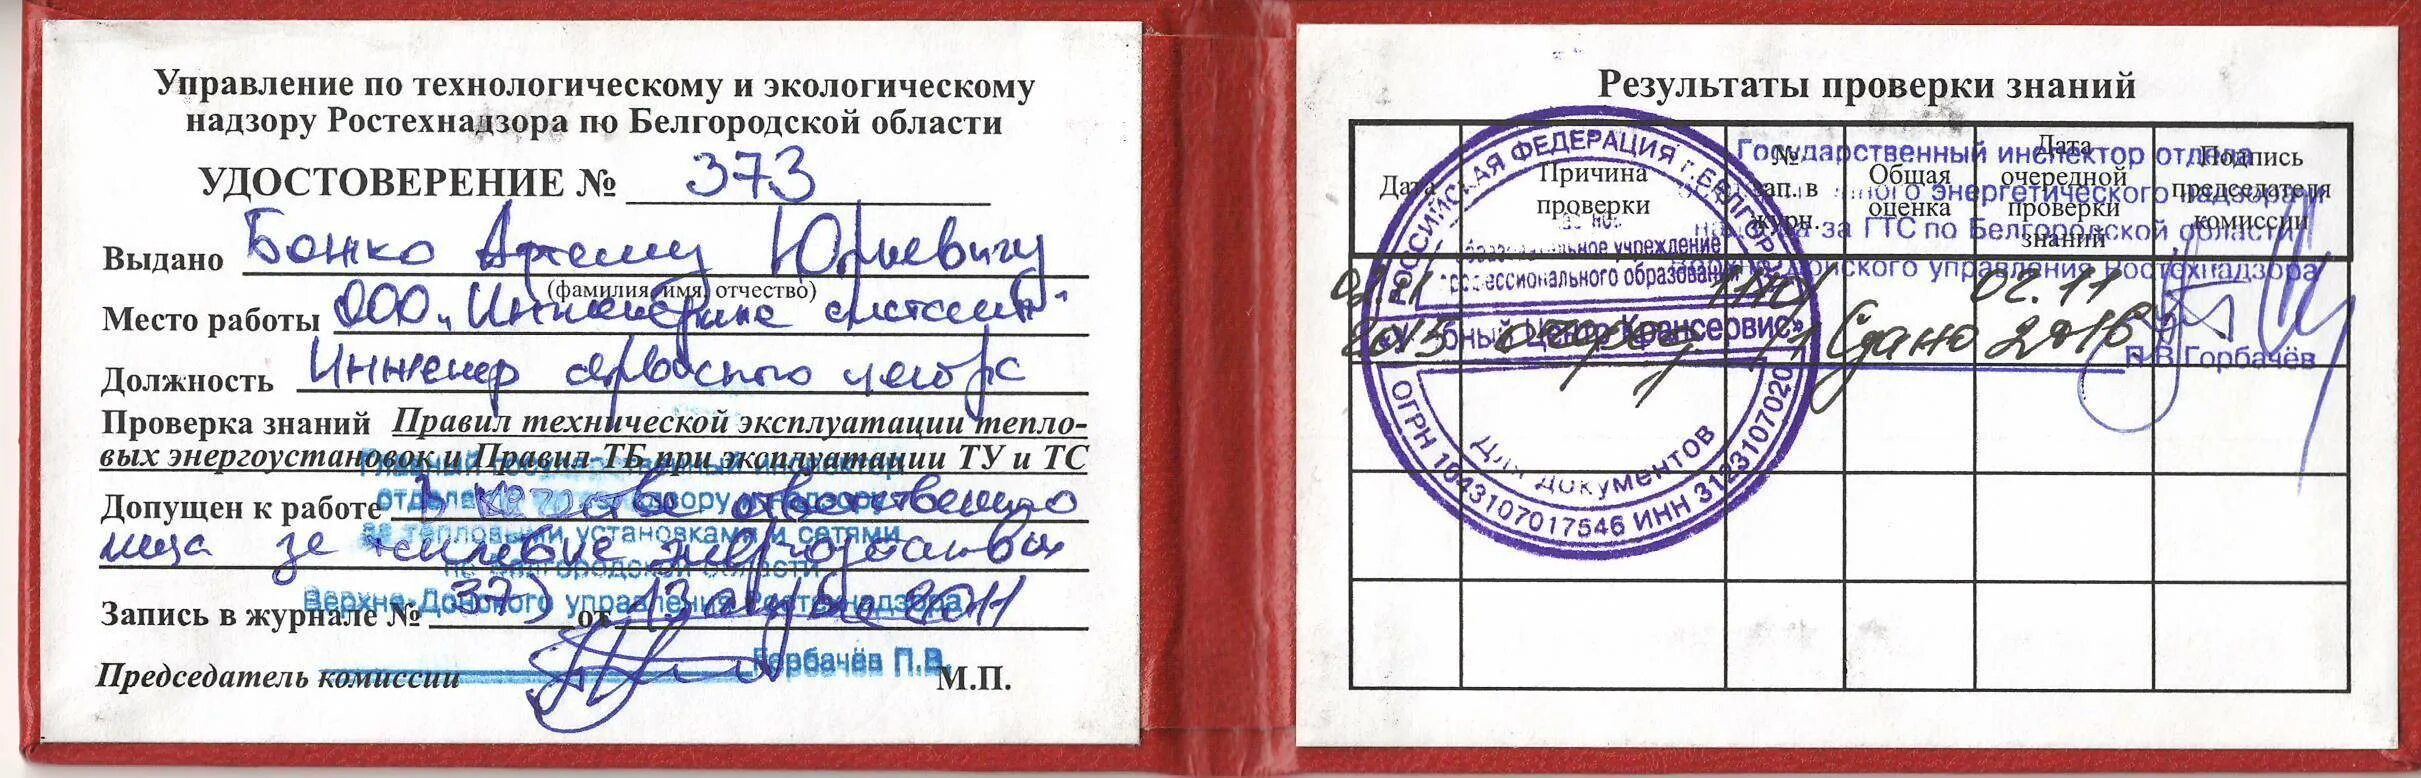 Управление по технологическому и экологическому
надзору Ростехнадзора по Белгородской области
УДОСТОВЕРЕНИЕ № 373
Выдано Божко Артему Юрьевичу
(фамилия, имя, отчество)
Место работы ООО "Инженерные системы"
Должность Инженер сервисного центра
Проверка знаний Правил технической эксплуатации тепло-
вых энергоустановок и Правил ТБ при эксплуатации ТУ и ТС
Главный государственный инспектор
Допущен к работе в качестве ответственного
отдела надзору
за тепловыми установками и сетями
лица за тепловые
по Белгородской области
Верхне-Донского управления Ростехнадзора
Запись в журнале № 373 от 13 2011
Горбачёв П.В.
Председатель комиссии М.П.
Результаты проверки знаний
Дата
Причина проверки
№ зап. в журн.
Общая оценка
Дата очередной проверки знаний
Подпись председателя комиссии
Государственный инспектор отдела
энергетического надзора и
надзора за ГТС по Белгородской области
Верхне-Донского управления Ростехнадзора
П.В.Горбачёв
02.11 2015 очеред. Сдано 02.11 2016
РОССИЙСКАЯ ФЕДЕРАЦИЯ г.БЕЛГОРОД
образовательное учреждение
профессионального образования
«Учебный Центр Транссервис»
Для документов
ОГРН 1043107017546 ИНН 3123107020